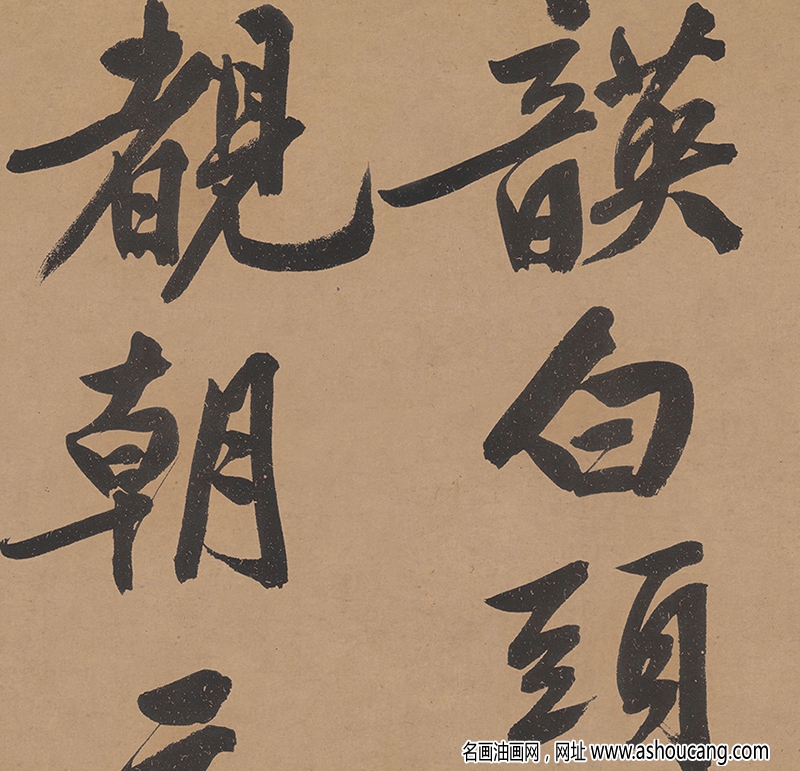 韺白頭
覩朝
名画油画网，网址 www.ashoucang.com